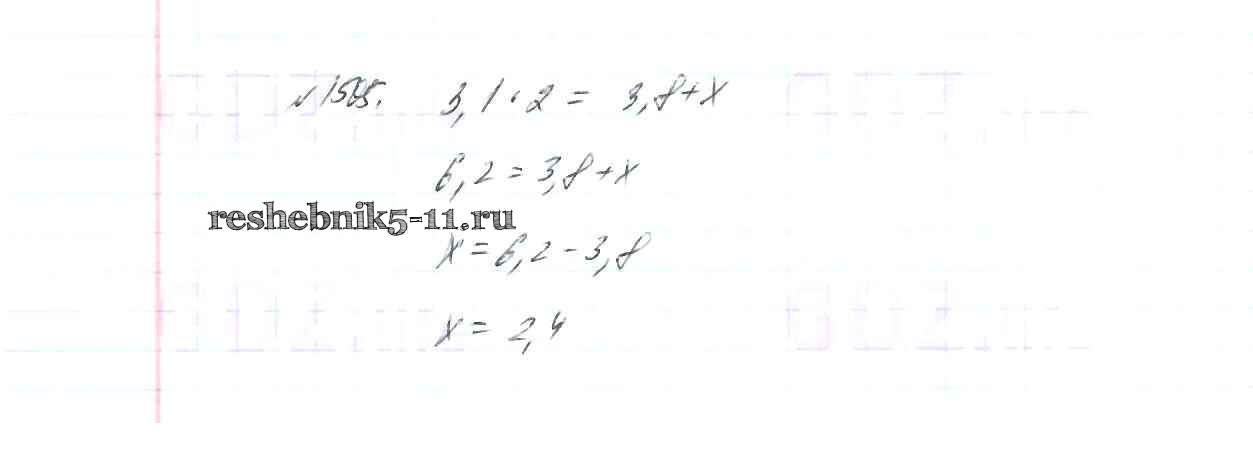 3,1 · 2 = 3,8 + x
6,2 = 3,8 + x
reshebnik5-11.ru
x = 6,2 - 3,8
x = 2,4